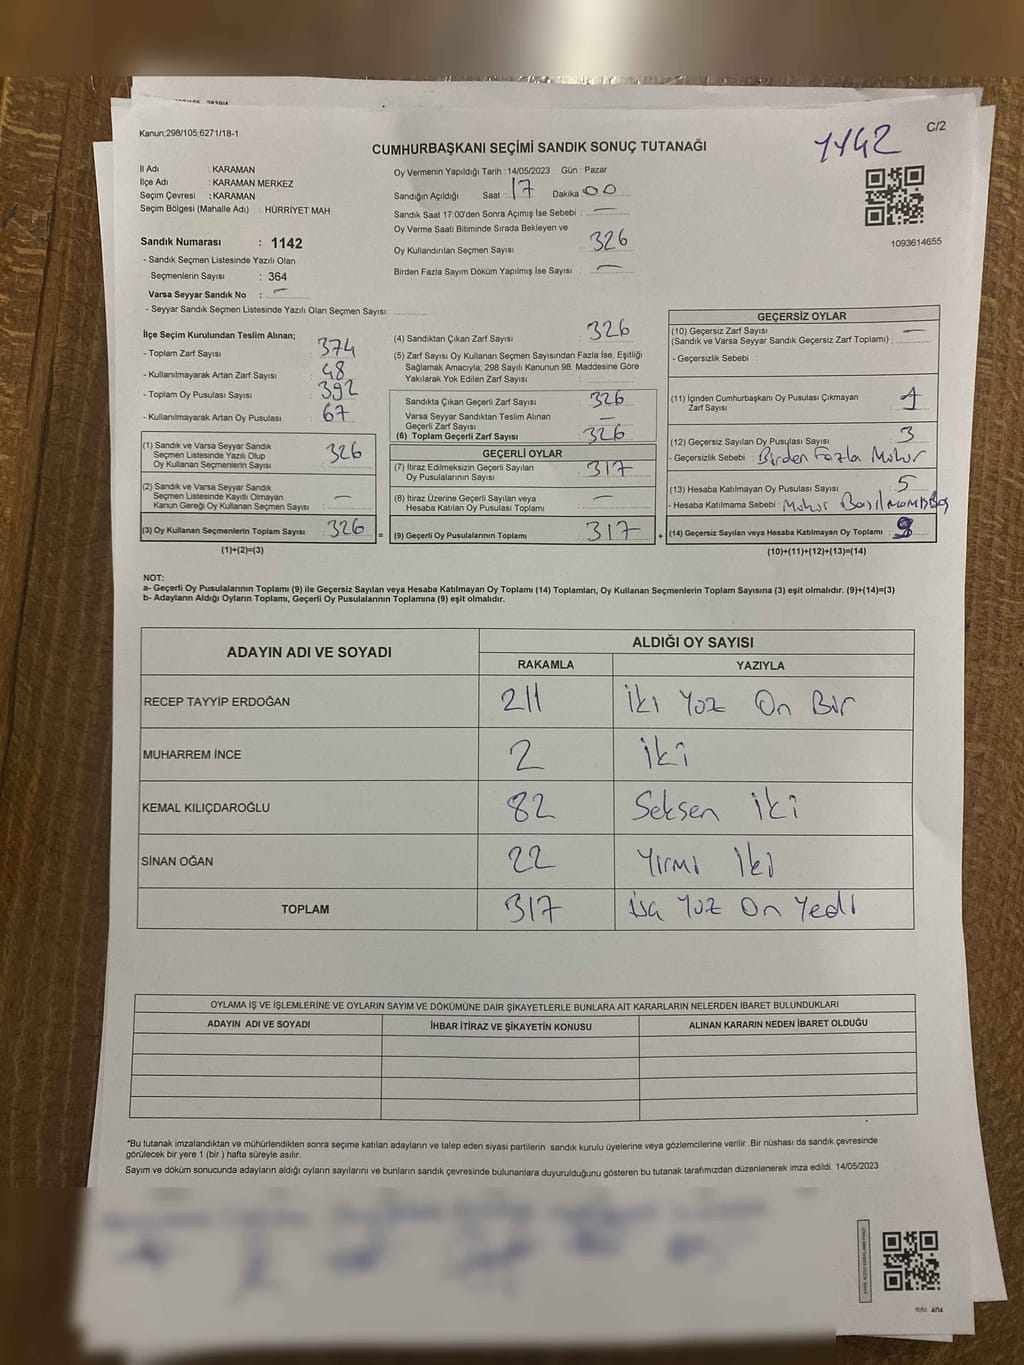 Kanun;298/105,6271/18-1
C/2
1142
CUMHURBAŞKANI SEÇİMİ SANDIK SONUÇ TUTANAĞI
İl Adı : KARAMAN
İlçe Adı : KARAMAN MERKEZ
Seçim Çevresi : KARAMAN
Seçim Bölgesi (Mahalle Adı) : HÜRRİYET MAH.
Sandık Numarası : 1142
- Sandık Seçmen Listesinde Yazılı Olan
Seçmenlerin Sayısı : 364
Varsa Seyyar Sandık No : —
- Seyyar Sandık Seçmen Listesinde Yazılı Olan Seçmen Sayısı:
Oy Vermenin Yapıldığı Tarih : 14/05/2023 Gün : Pazar
Sandığın Açıldığı Saat : 17 Dakika 00
Sandık Saat 17:00'den Sonra Açımış İse Sebebi : —
Oy Verme Saati Bitiminde Sırada Bekleyen ve
Oy Kullandırılan Seçmen Sayısı : 326
Birden Fazla Sayım Döküm Yapılmış İse Sayısı : —
1093614655
İlçe Seçim Kurulundan Teslim Alınan;
- Toplam Zarf Sayısı : 374
- Kullanılmayarak Artan Zarf Sayısı : 48
- Toplam Oy Pusulası Sayısı : 392
- Kullanılmayarak Artan Oy Pusulası : 67
(1) Sandık ve Varsa Seyyar Sandık
Seçmen Listesinde Yazılı Olup
Oy Kullanan Seçmenlerin Sayısı : 326
(2) Sandık ve Varsa Seyyar Sandık
Seçmen Listesinde Kayıtlı Olmayan
Kanun Gereği Oy Kullanan Seçmen Sayısı : —
(3) Oy Kullanan Seçmenlerin Toplam Sayısı : 326
(1)+(2)=(3)
=
(4) Sandıktan Çıkan Zarf Sayısı : 326
(5) Zarf Sayısı Oy Kullanan Seçmen Sayısından Fazla İse, Eşitliği
Sağlamak Amacıyla; 298 Sayılı Kanunun 98. Maddesine Göre
Yakılarak Yok Edilen Zarf Sayısı :
Sandıkta Çıkan Geçerli Zarf Sayısı : 326
Varsa Seyyar Sandıktan Teslim Alınan
Geçerli Zarf Sayısı : —
(6) Toplam Geçerli Zarf Sayısı : 326
GEÇERLİ OYLAR
(7) İtiraz Edilmeksizin Geçerli Sayılan
Oy Pusulalarının Sayısı : 317
(8) İtiraz Üzerine Geçerli Sayılan veya
Hesaba Katılan Oy Pusulası Toplamı : —
(9) Geçerli Oy Pusulalarının Toplamı : 317
+
GEÇERSİZ OYLAR
(10) Geçersiz Zarf Sayısı
(Sandık ve Varsa Seyyar Sandık Geçersiz Zarf Toplamı) : —
- Geçersizlik Sebebi :
(11) İçinden Cumhurbaşkanı Oy Pusulası Çıkmayan
Zarf Sayısı : 1
(12) Geçersiz Sayılan Oy Pusulası Sayısı : 3
- Geçersizlik Sebebi : Birden Fazla Mühür
(13) Hesaba Katılmayan Oy Pusulası Sayısı : 5
- Hesaba Katılmama Sebebi : Mühür Basılmamış Boş
(14) Geçersiz Sayılan veya Hesaba Katılmayan Oy Toplamı : 9
(10)+(11)+(12)+(13)=(14)
NOT:
a- Geçerli Oy Pusulalarının Toplamı (9) ile Geçersiz Sayılan veya Hesaba Katılmayan Oy Toplamı (14) Toplamları, Oy Kullanan Seçmenlerin Toplam Sayısına (3) eşit olmalıdır. (9)+(14)=(3)
b- Adayların Aldığı Oyların Toplamı, Geçerli Oy Pusulalarının Toplamına (9) eşit olmalıdır.
ADAYIN ADI VE SOYADI
ALDIĞI OY SAYISI
RAKAMLA YAZIYLA
RECEP TAYYİP ERDOĞAN 211 İki Yüz On Bir
MUHARREM İNCE 2 İki
KEMAL KILIÇDAROĞLU 82 Seksen İki
SİNAN OĞAN 22 Yirmi İki
TOPLAM 317 Yüz On Yedi
OYLAMA İŞ VE İŞLEMLERİNE VE OYLARIN SAYIM VE DÖKÜMÜNE DAİR ŞİKAYETLERLE BUNLARA AİT KARARLARIN NELERDEN İBARET BULUNDUKLARI
ADAYIN ADI VE SOYADI İHBAR İTİRAZ VE ŞİKAYETİN KONUSU ALINAN KARARIN NEDEN İBARET OLDUĞU
*Bu tutanak imzalandıktan ve mühürlendikten sonra seçime katılan adayların ve talep eden siyasi partilerin sandık kurulu üyelerine veya gözlemcilerine verilir .Bir nüshası da sandık çevresinde
görülecek bir yere 1 (bir ) hafta süreyle asılır.
Sayım ve döküm sonucunda adayların aldığı oyların sayılarını ve bunların sandık çevresinde bulunanlara duyurulduğunu gösteren bu tutanak tarafımızdan düzenlenerek imza edildi. 14/05/2023